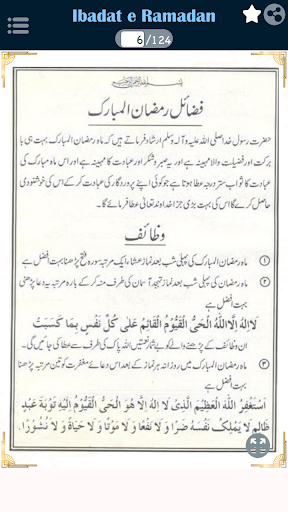 Ibadat e Ramadan
6/124
بسم اللہ الرحمن الرحیم
فضائل رمضان المبارک
حضرت رسول خدا صلی اللہ علیہ وآلہ وسلم ارشاد فرماتے ہیں کہ ماہ رمضان المبارک بہت ہی با
برکت اور فضیلت والا مہینہ ہے اور یہ صبر و شکر اور عبادت کا مہینہ ہے اور اس ماہ مبارک کی
عبادت کا ثواب ستر درجہ عطا ہوتا ہے جو کوئی اپنے پروردگار کی عبادت کر کے اس کی خوشنودی
حاصل کرے گا اس کی بہت بڑی جزا خداوند تعالیٰ عطا فرمائے گا۔
وظائف
۱ ماہ رمضان المبارک کی پہلی شب بعد نماز عشاء ایک مرتبہ سورہ فتح پڑھنا بہت افضل ہے
۲ ماہ رمضان المبارک کی پہلی شب بعد نماز تہجد آسمان کی طرف منہ کر کے بارہ مرتبہ یہ دعا پڑھنی
بہت افضل ہے
لَا اِلٰهَ اِلَّا اللّٰهُ الْحَيُّ الْقَيُّوْمُ الْقَائِمُ عَلٰى كُلِّ نَفْسٍ بِمَا كَسَبَتْ
ان وظائف کے پڑھنے والے کو بے شمار نعمتیں اللہ پاک کی طرف سے عطا کی جائیں گی۔
۳ ماہ رمضان المبارک میں روزانہ ہر نماز کے بعد اس دعائے مغفرت کو تین مرتبہ پڑھنا
بہت افضل ہے
اَسْتَغْفِرُ اللّٰهَ الْعَظِيْمَ الَّذِيْ لَا اِلٰهَ اِلَّا هُوَ الْحَيُّ الْقَيُّوْمُ اِلَيْهِ تَوْبَةَ عَبْدٍ
ظَالِمٍ لَا يَمْلِكُ نَفْسَهُ ضَرًّا وَ لَا نَفْعًا وَ لَا مَوْتًا وَ لَا حَيَاةً وَ لَا نُشُوْرًا.